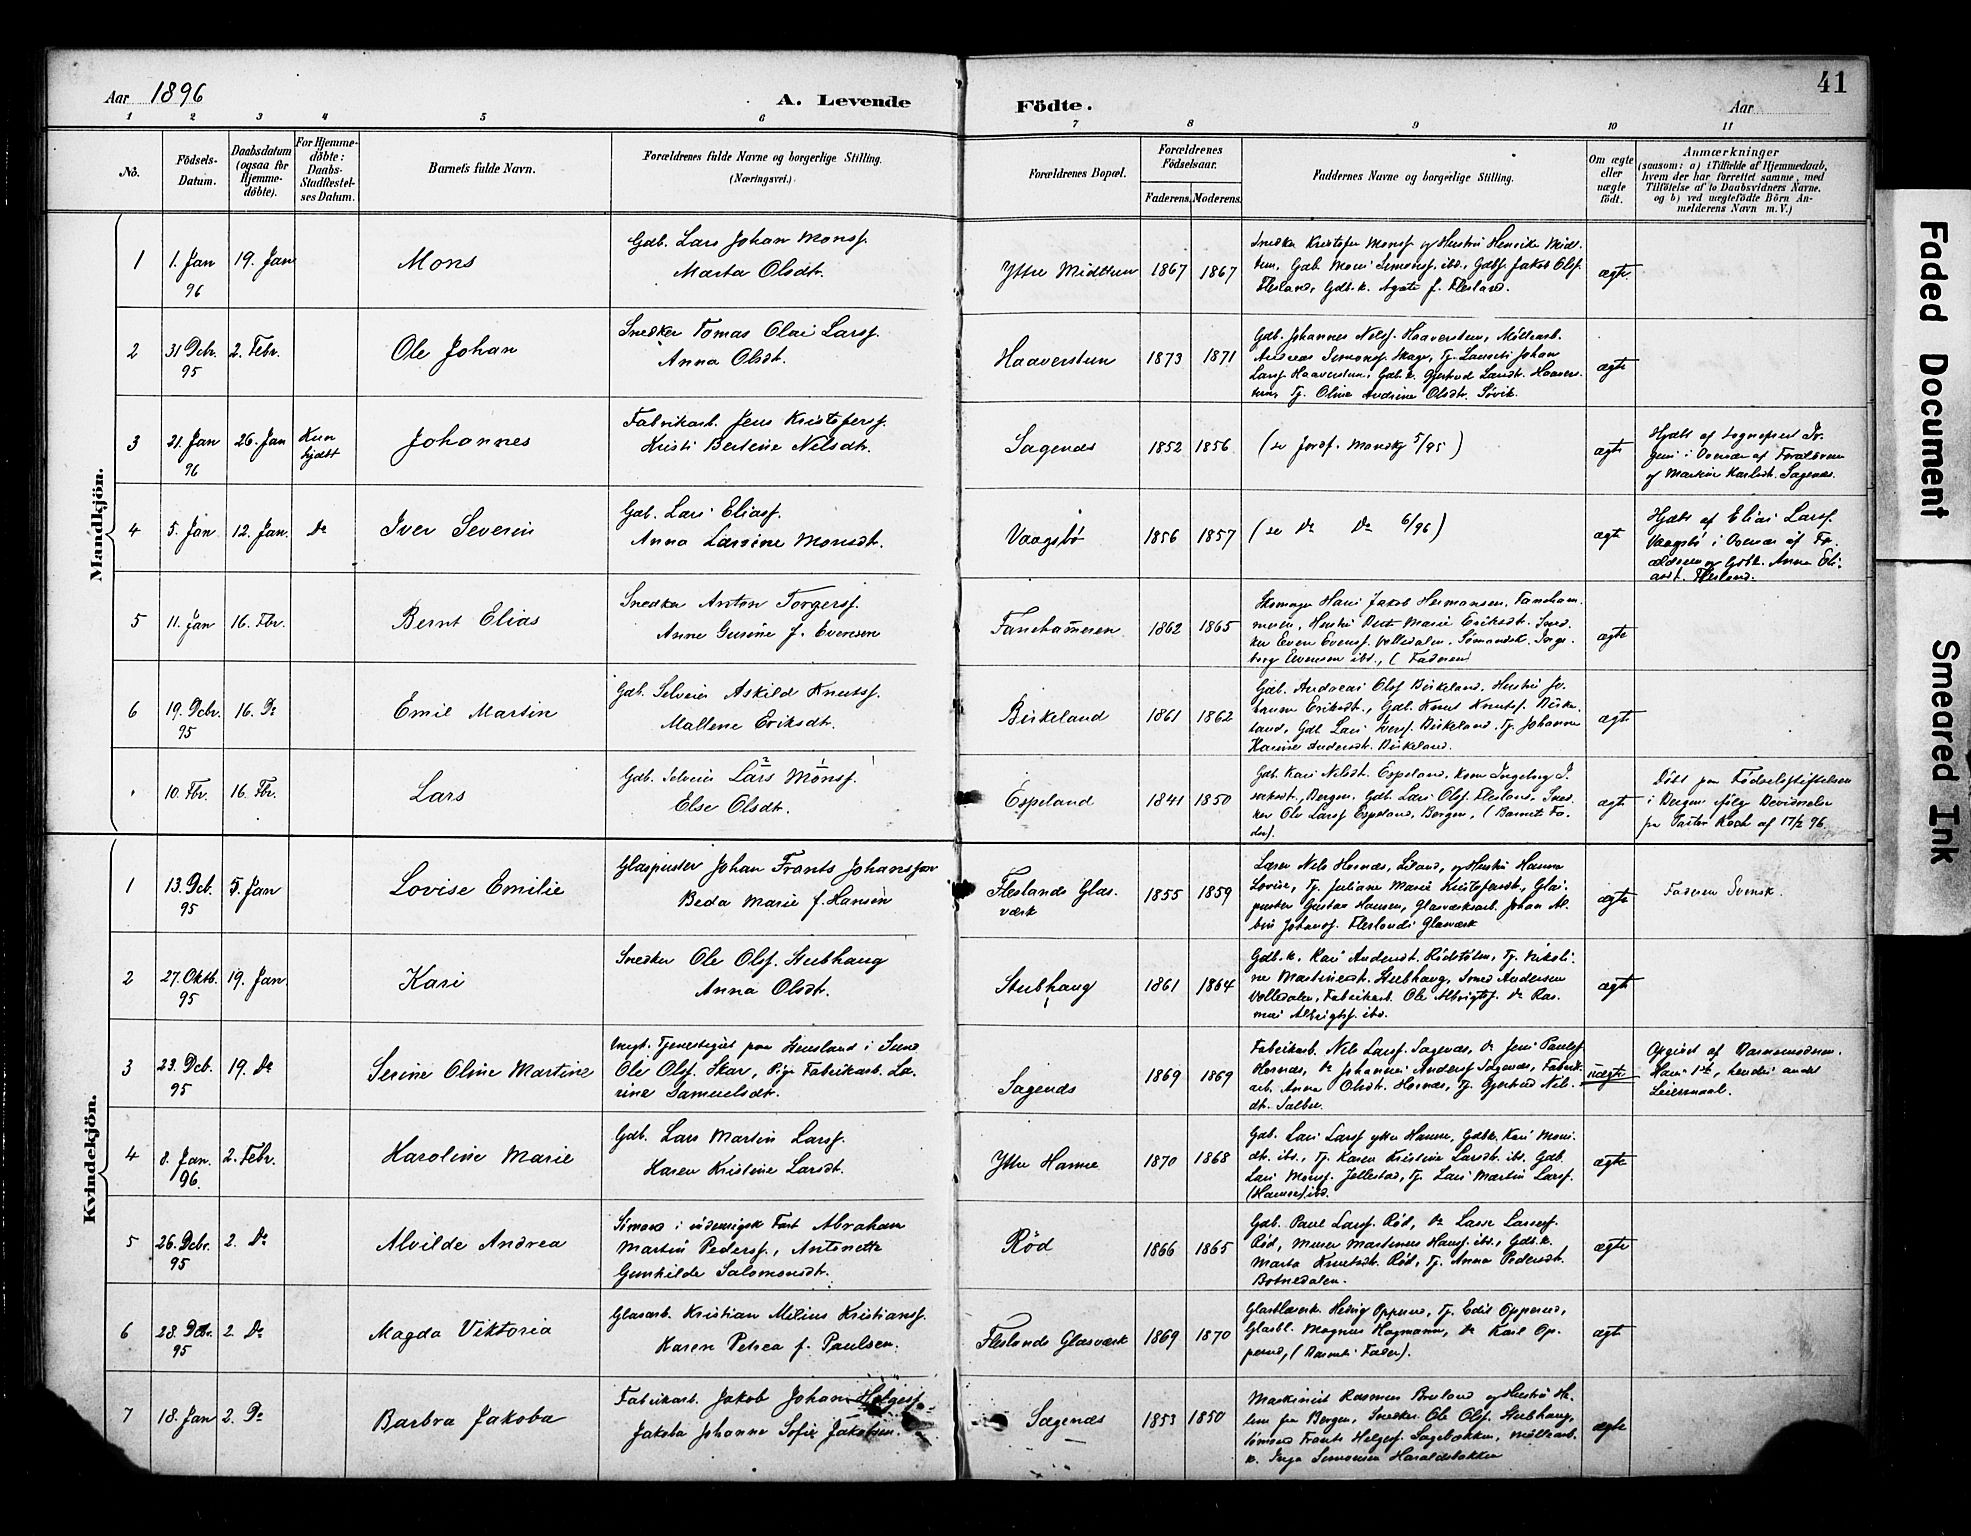 Aar 1896
A. Levende Födte.
Aar
41
1 2 3 4 5 6 7 8 9 10 11
No.
Födsels-Datum.
Daabsdatum (ogsaa for Hjemme-döbte).
For Hjemme-döbte: Daabs-Stadfæstel-ses Datum.
Barnets fulde Navn.
Forældrenes fulde Navne og borgerlige Stilling. (Næringsvei.)
Forældrenes Bopæl.
Forældrenes Födselsaar.
Faderens. Moderens.
Faddernes Navne og borgerlige Stilling.
Om ægte eller uægte födt.
Anmærkninger
(saasom: a) i Tilfælde af Hjemmedaab,
hvem der har forrettet samme, med
Tilföielse af to Daabsvidners Navne.
og b) ved uægtefödte Börn An-
melderens Navn m. V.)
Mandkjön.
1 1. Jan 96 19. Jan Mons
Gdb. Lars Johan Monsf.
Marta Olsdt.
Ytre Midttun 1867 1867
Snedker Kristofer Monsf. og Hustru Henrike Midt-
tun, Gdb. Mons Simonsf. ibd., Gdbf. Jakob Olsf.
Flesland, Gdb.k. Agate f. Flesland.
ægte
2 31 Dcbr. 95 2. Febr. Ole Johan
Snedker Tomas Olai Larsf.
Anna Olsdt.
Haaverstun 1873 1871
Gdb. Johannes Nilsf. Haaverstun, Möllearb.
Andreas Simonsf. Skage, Tj. Laurits Johan
Larsf. Haaverstun, Gdb.k. Gjertrud Larsdt. Haavers-
tun, Tj. Oline Andrine Olsdt. Sövik.
ægte
3 21. Jan 96 26. Jan Kun hjdöbt Johannes
Fabrikarb. Jens Kristofersf.
Kristi Bertine Nilsdt.
Sagenæs 1852 1856
(se Jordf. Mandkj 5/95)
ægte
Hjdöbt af Sognepræst
i Overvær af Forældrene
og Martine Karlsdt. Sagenæs.
4 5. Jan 12. Jan. Do Iver Severin
Gdb. Lars Eliasf.
Anna Larsine Monsdt.
Vaagsbö 1856 1857
(se Do Do 6/96)
ægte
Hjdöbt af Elias Larsf.
Vaagsbö i Overvær af For-
ældrene og Gdb.k. Anna Eli-
asdt. Flesland.
5 11. Jan 16. Fbr. Bernt Elias
Snedker Anton Torgersf.
Anne Gurine f. Evensen
Fanehammeren 1862 1865
Skomager Hans Jakob Hermansen, Faneham-
meren, Hustru Berte Marie Eriksdt. Sned-
ker Even Evensf. Volledalen, Sömandsk. Inge-
borg Evensen ibd., (Faderen)
ægte
6 19. Dcbr. 95 16. Do Emil Martin
Gdb. Selveier Askild Knutsf.
Mallene Eriksdt.
Birkeland 1861 1862
Gdb. Andreas Olsf. Birkeland, Hustru Jo-
hanne Eriksdt., Gdb. Knut Knutsf. Birke-
land, Gdb. Lars Iversf. Birkeland, Tj. Johanne
Karine Andersdt. Birkeland.
ægte
10. Fbr. 16. Fbr. Lars
Gdb. Selveier Lars Monsf.
Else Olsdt.
Espeland 1841 1850
Gdb. Kari Nilsdt. Espeland, Kone Ingeborg I-
saksdt., Bergen, Gdb. Lars Olsf. Flesland, Sned-
ker Ole Larsf. Espeland, Bergen, (Barnets Fa-
der).
ægte
Döbt paa Födselsstiftelsen
i Bergen ifölge Bevidnelse
fra Pastor Koch af 17/2 96.
Kvindekjön.
1 13. Dcb. 95 5. Jan Lovise Emilie
Glaspuster Johan Frants Johansson
Beda Marie f. Hansen
Fleslands Glas-
værk 1855 1859
Lærer Nils Hosnæs, Liland, og Hustru Hanna
Lovise, Tj. Juliane Marie Kristofersdt., Glas-
puster Gustav Hansen, Glasværksarb. Johan Al-
bin Johansf. Fleslands Glasværk
ægte
Faderen Svensk.
2 27. Oktb. 95 19. Jan Kari
Snedker Ole Olsf. Stubhaug
Anna Olsdt.
Stubhaug 1861 1864
Gdb.k. Kari Andersdt. Rödstölen, Tj. Nikoli-
ne Martinesdt. Stubhaug, Smed Andersen
Volledalen, Fabrikarb. Ole Albrigtsf. Do Ras-
mus Albrigtsf. ibd.
ægte
3 23. Dcb. 95 19. Do Serine Oline Martine
Ungk. Tjenestegut paa Huusland i Sund
Ole Olsf. Skar, Pige Fabrikarb. La-
rine Samuelsdt.
Sagenæs 1869 1869
Fabrikarb. Nils Larsf. Sagenæs, Do Jens Paulsf.
Hosnæs, Do Johannes Andersf. Sagenæs, Fabrik-
arb. Anna Olsdt. Hosnæs, Tj. Gjertrud Nils-
dt. Salbu.
uægte
Opgivet af Barnemoderen.
Hans 1ste, hendes andet
Leiersmaal.
4 8. Jan. 96. 2. Febr. Karoline Marie
Gdb. Lars Martin Larsf.
Karen Kristine Larsdt.
Ytre Hamre 1870 1868
Gdb. Lars Larsf. ytre Hamre, Gdb.k. Kari Mons-
dt. ibd., Tj. Karen Kristine Larsdt. ibd. Gdb.
Lars Monsf. Jellestad, Tj. Lars Martin Larsf.
(Hamre) ibd.
ægte
5 26. Dcbr. 95 2. Do Alvilde Andrea
Sömand i indenrigsk Fart Abraham
Martin Pedersf., Antonette
Gunhilde Salomonsdt.
Röd 1866 1865
Gdb. Paul Larsf. Röd, Do Lasse Lassesf.
Röd, Murer Martinus Hansf. ibd., Gdb.k.
Marta Knutsdt. Röd, Tj. Anna Pedersdt.
Botnedalen.
ægte
6 28. Dcbr. 95 2. Do Magda Viktoria
Glasarb. Kristian Milius Kristiansf.
Karen Petrea f. Paulsen.
Fleslands Glasværk 1869 1870
Glasblæserk. Hedvig Opperud, Tj. Edle Opperud,
Glasbl. Magnus Hagmann, Do Karl Op-
perud, (Barnets Fader).
ægte
7 18. Jan 2. Do Barbra Jakoba
Fabrikarb. Jakob Johan Helgesf.
Jakoba Johanne Sofie Jakobsen.
Sagenæs 1853 1850
Maskinist Rasmus Bruland og Hustru He-
lene fra Bergen, Snedker Ole Olsf. Stubhaug,
Sömand Frants Helgesf. Sagebakken, Möllearb.
k. Inga Simonsen Haraldsbakken
ægte
Faded Document
Smeared Ink